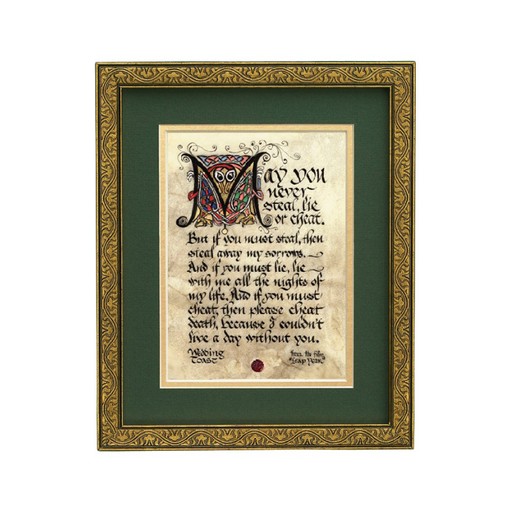 May you
never
steal, lie
or cheat.
But if you must steal, then
steal away my sorrows.
And if you must lie, lie
with me all the nights of
my life. And if you must
cheat, then please cheat
death, because I couldn't
live a day without you.
Wedding from the film
Toast "Leap Year"